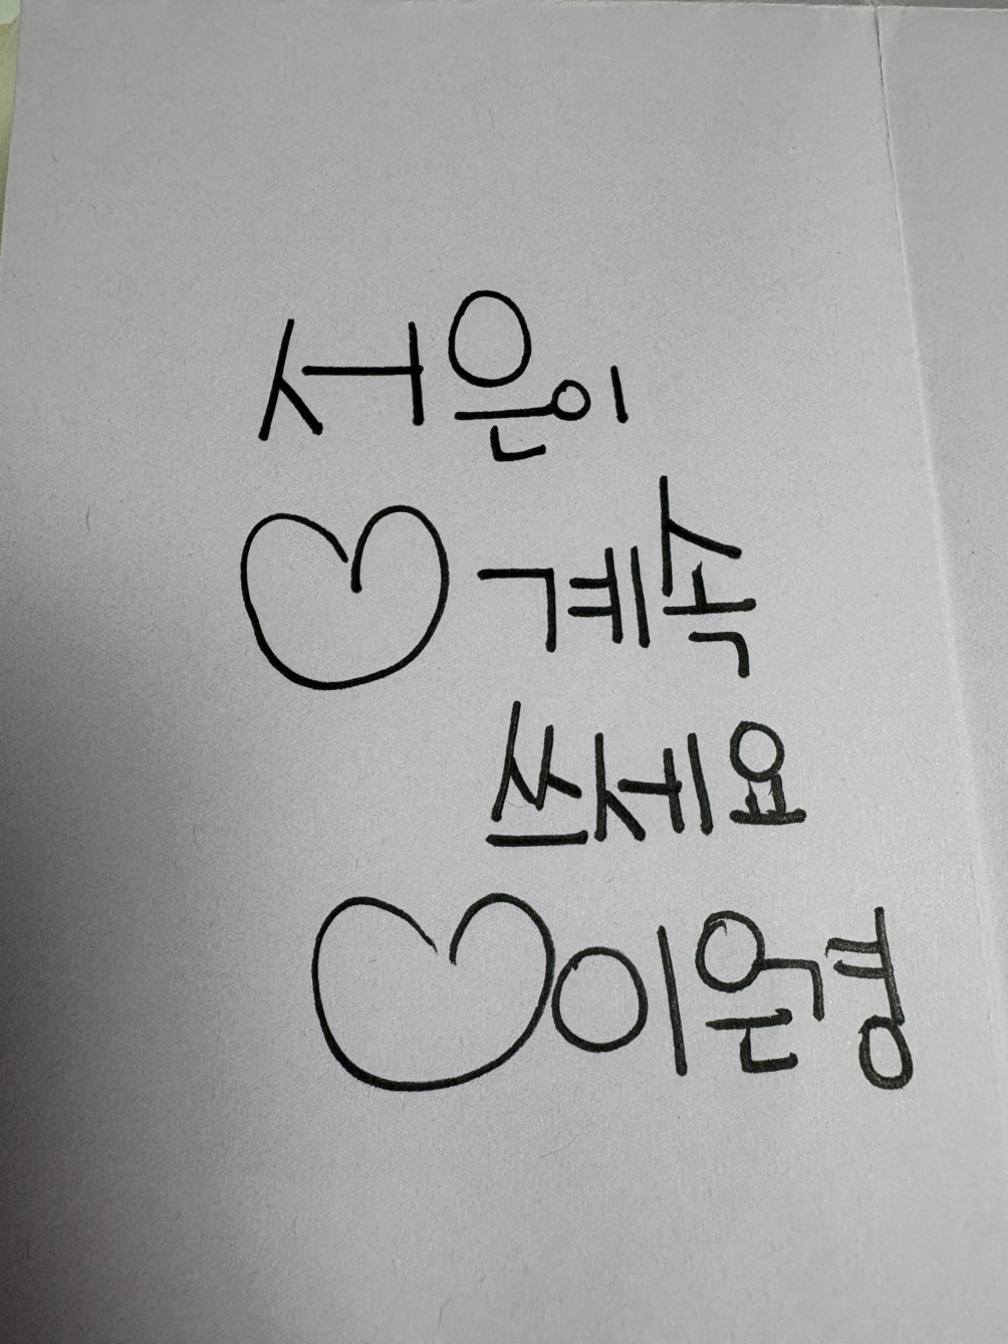 서은이
♡계속
쓰세요
♡이은경